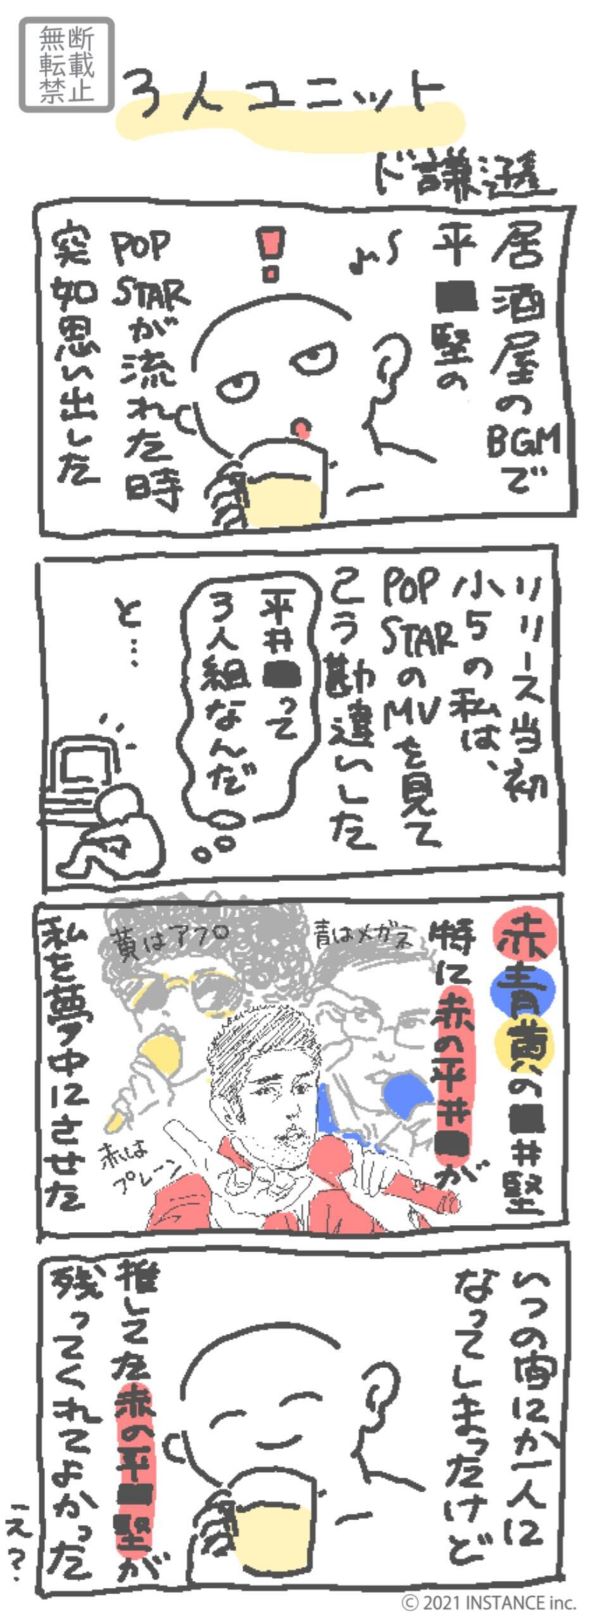 無断
転載
禁止
3人ユニット
ド謙遜
居酒屋の
BGMで
平■堅の
POP
STARが流れた時
突如思い出した
リリース当初
小5の私は、
POP
STARの
MVを見て
こう勘違いした
平井■って
3人組なんだ
と…
赤青黄の■井堅
特に赤の平井■が
私を夢中にさせた
黄はアフロ
青はメガネ
赤は
プレーン
いつの間にか一人に
なってしまったけど
推してた赤の平■堅が
残ってくれてよかった
え?
© 2021 INSTANCE inc.